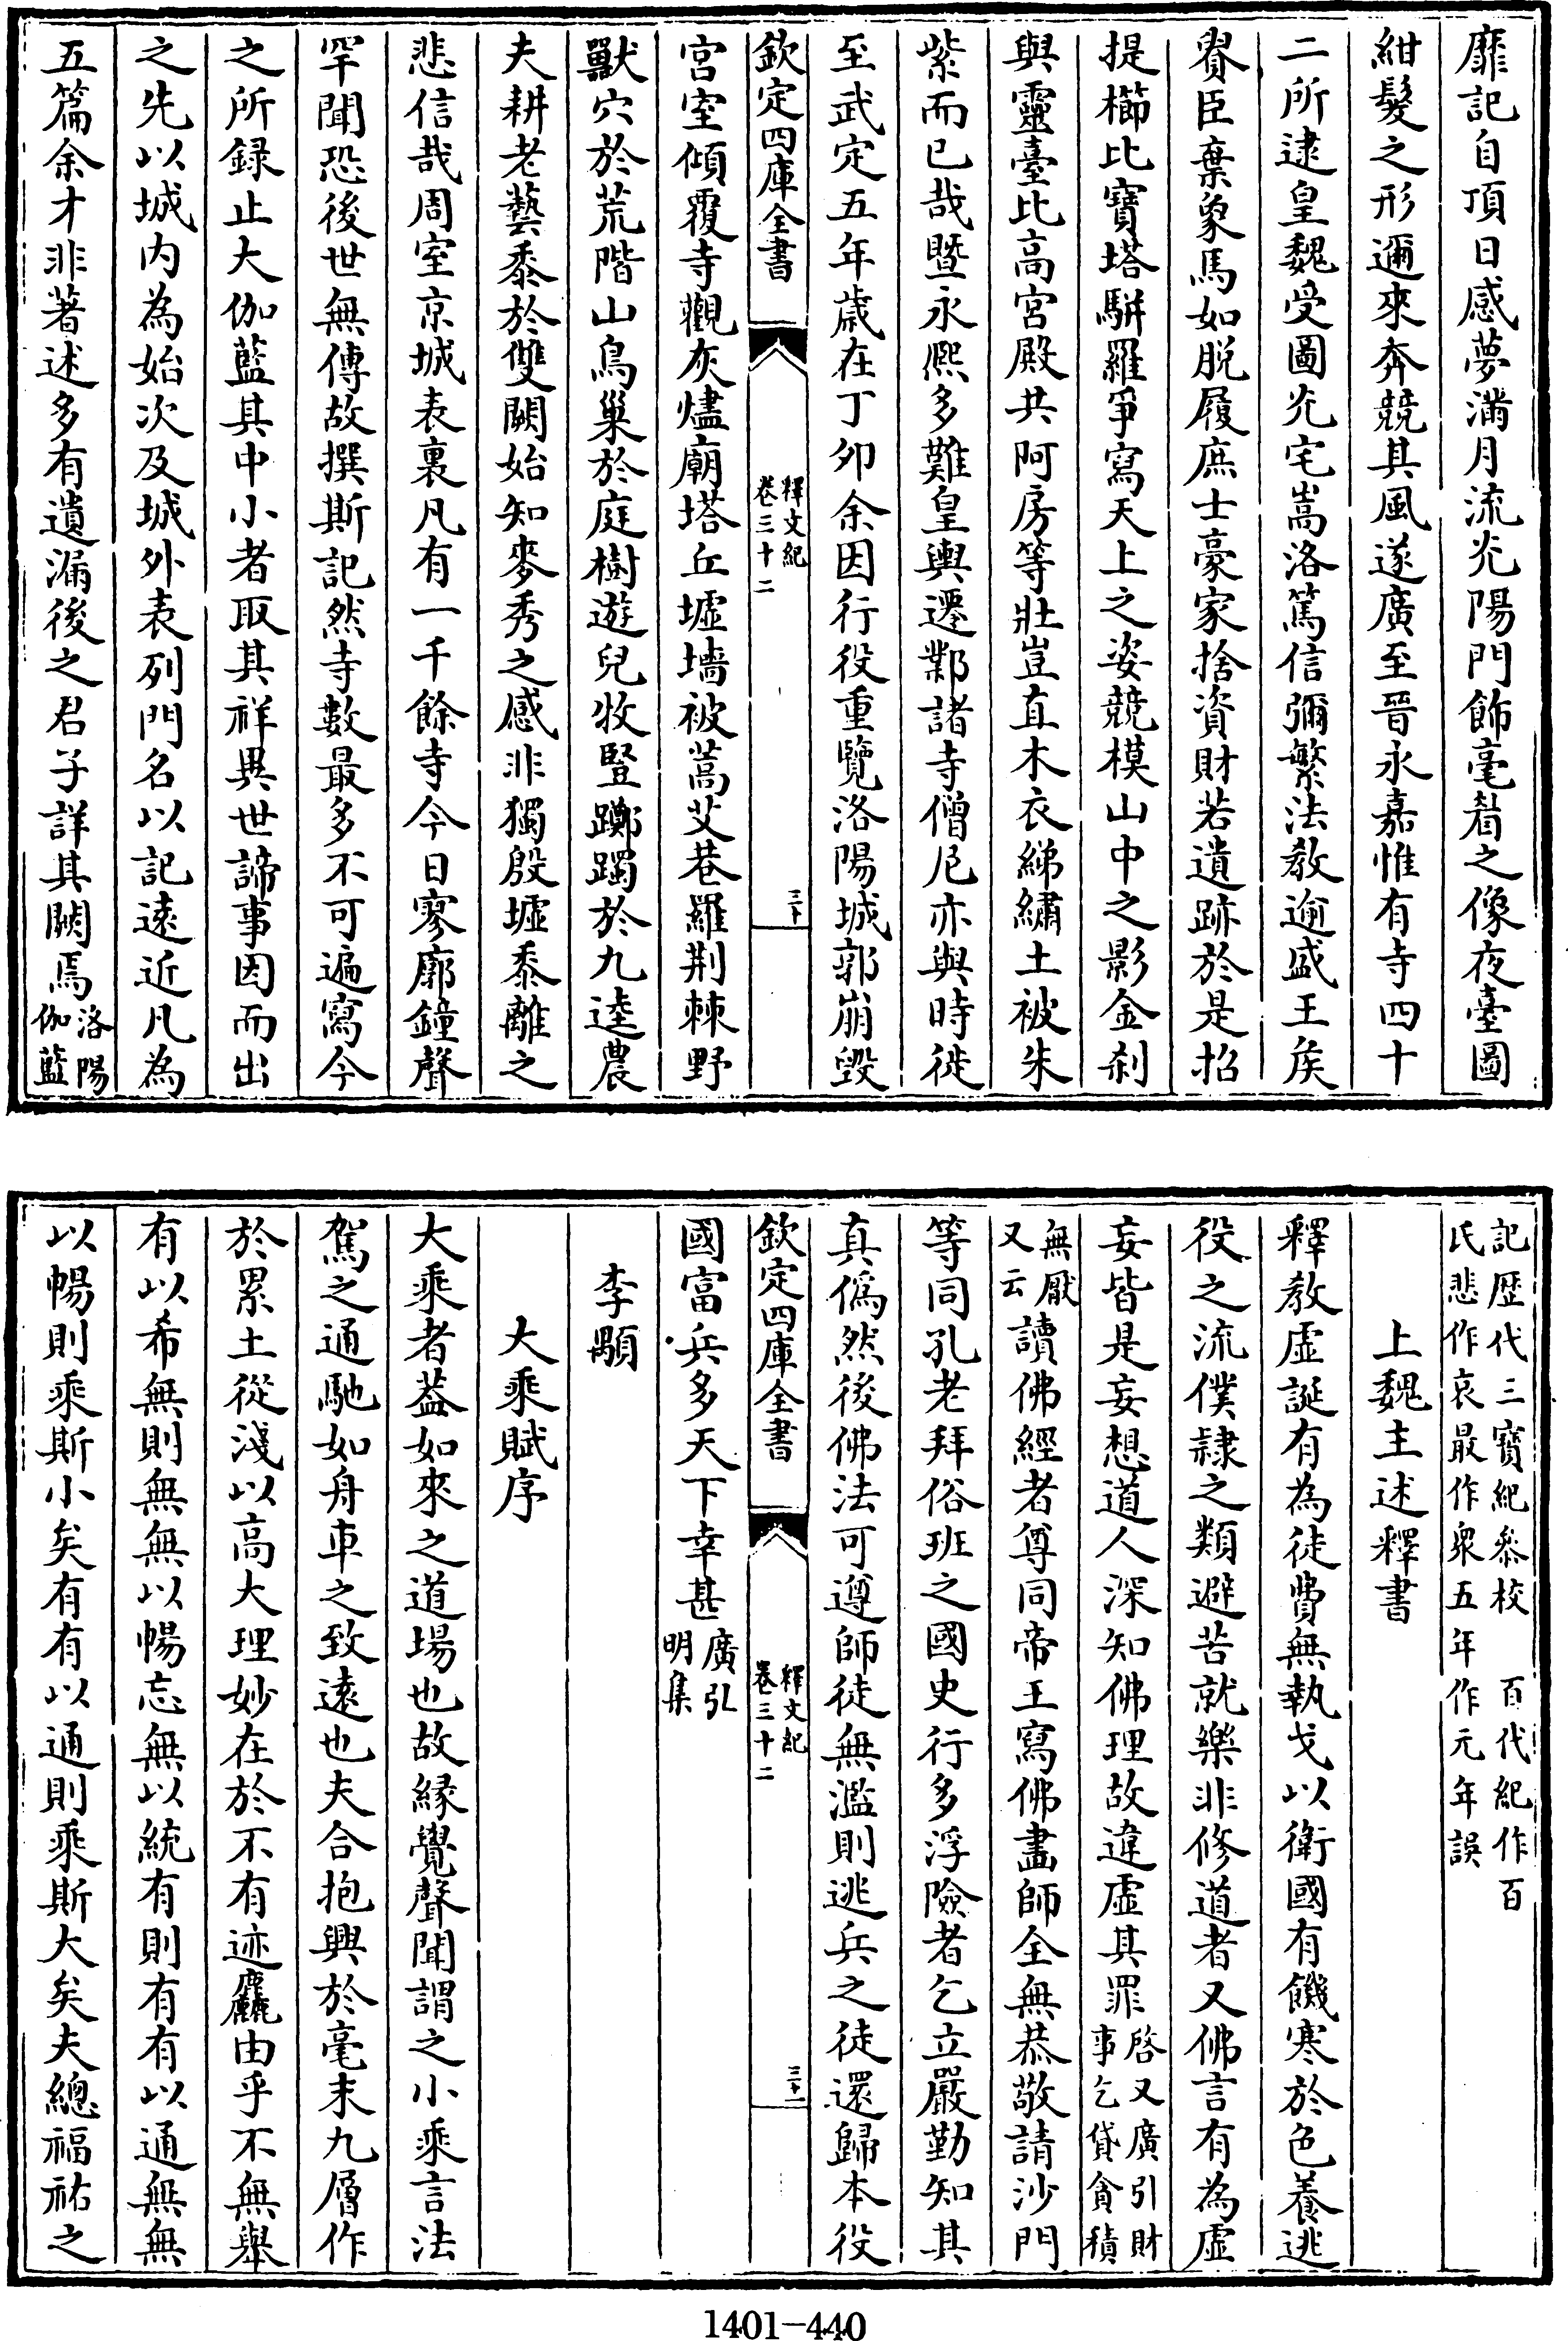 靡記自頂日感夢滿月流光陽門飾毫眉之像夜臺圖
紺髮之形邇來奔競其風遂廣至晉永嘉惟有寺四十
二所逮皇魏受圖光宅嵩洛篤信彌繁法教逾盛王侯
賚臣棄象馬如脱履庶士豪家捨資財若遺跡於是招
提櫛比寶塔駢羅爭寫天上之姿競模山中之影金刹
與靈臺比高宮殿共阿房等壯豈直木衣綈繡土被朱
紫而已哉暨永熙多難皇輿遷鄴諸寺僧尼亦與時徙
至武定五年歲在丁卯余因行役重覽洛陽城郭崩毀
欽定四庫全書
釋文紀
卷三十二
三十
宮室傾覆寺觀灰燼廟塔丘墟墻被蒿艾巷羅荆棘野
獸穴於荒階山鳥巢於庭樹遊兒牧豎躑躅於九逵農
夫耕老藝黍於雙闕始知麥秀之感非獨殷墟黍離之
悲信哉周室京城表裏凡有一千餘寺今日寥廓鐘聲
罕聞恐後世無傳故撰斯記然寺數最多不可遍寫今
之所録止大伽藍其中小者取其祥異世諦事因而出
之先以城内為始次及城外表列門名以記遠近凡為
五篇余才非著述多有遺漏後之君子詳其闕焉洛陽
伽藍
記歴代三寶紀叅校　百代紀作百
氏悲作哀最作衆五年作元年誤
上魏主述釋書
釋教虚誕有為徒費無執戈以衛國有饑寒於色養逃
役之流僕隷之類避苦就樂非修道者又佛言有為虚
妄皆是妄想道人深知佛理故違虚其罪啓又廣引財
事乞貸貪積
無厭
又云讀佛經者尊同帝王寫佛畫師全無恭敬請沙門
等同孔老拜俗班之國史行多浮險者乞立嚴勤知其
真僞然後佛法可遵師徒無濫則逃兵之徒還歸本役
欽定四庫全書
釋文紀
卷三十二
三十一
國富兵多天下幸甚廣弘
明集
李顒
大乘賦序
大乘者葢如來之道場也故縁覺聲聞謂之小乘言法
駕之通馳如舟車之致遠也夫合抱興於毫末九層作
於累土從淺以高大理妙在於不有迹麤由乎不無舉
有以希無則無無以暢忘無以統有則有有以通無無
以暢則乘斯小矣有有以通則乘斯大矣夫總福祐之
1401-440